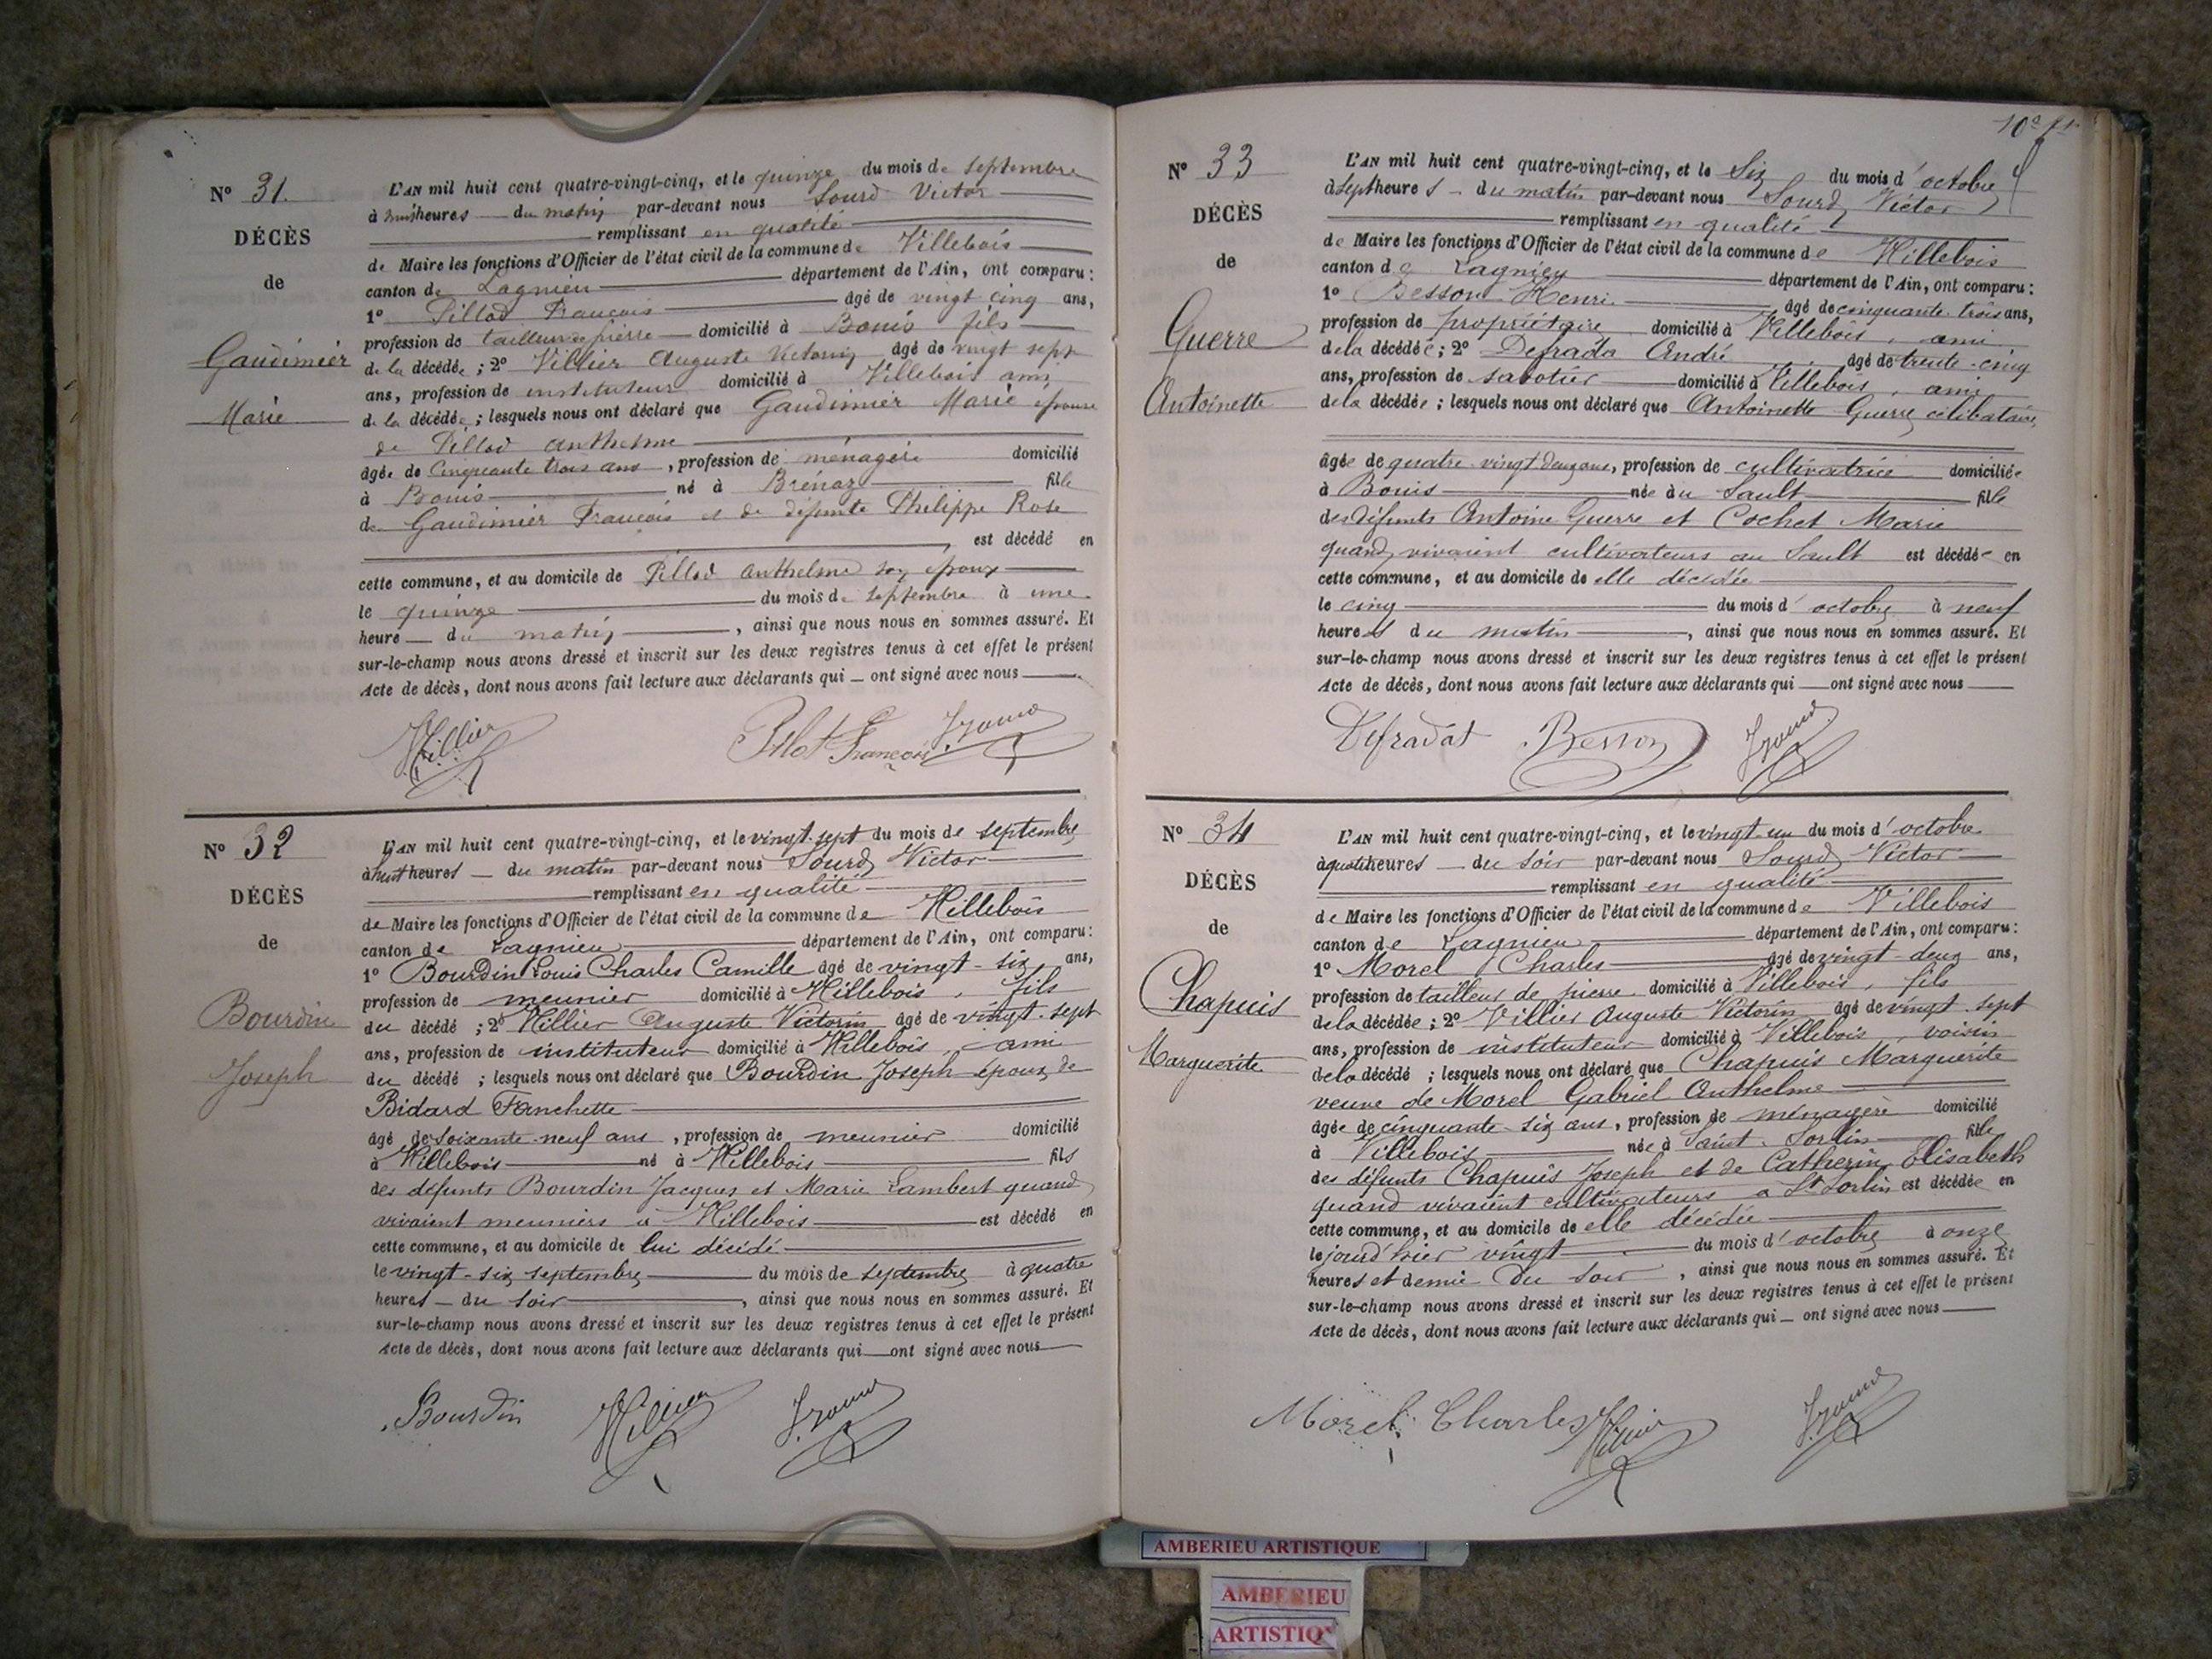 N° 31.
DÉCÈS
de
Gaudimier
Marie
L'AN mil huit cent quatre-vingt-cinq, et le quinze du mois de septembre
à huit heures du matin par-devant nous Sourd Victor
remplissant en qualité
de Maire les fonctions d'Officier de l'état civil de la commune de Villebois
canton de Lagnieu département de l'Ain, ont comparu :
1° Pillod François âgé de vingt cinq ans,
profession de tailleur de pierre domicilié à Bouis fils
de la décédée ; 2° Villier Auguste Victorin âgé de vingt sept
ans, profession de instituteur domicilié à Villebois ami
de la décédée ; lesquels nous ont déclaré que Gaudimier Marie épouse
de Pillod Anthelme
âgée de Cinquante trois ans, profession de ménagère domicilié
à Bouis né à Brénaz fille
de Gaudimier François et de défunte Philippe Rose
est décédé en
cette commune, et au domicile de Pillod Anthelme son époux
le quinze du mois de septembre à une
heure du matin, ainsi que nous nous en sommes assuré. Et
sur-le-champ nous avons dressé et inscrit sur les deux registres tenus à cet effet le présent
Acte de décès, dont nous avons fait lecture aux déclarants qui ont signé avec nous
Villier Pilot François
N° 32
DÉCÈS
de
Bourdin
Joseph
L'AN mil huit cent quatre-vingt-cinq, et le vingt-sept du mois de septembre
à huit heures du matin par-devant nous Sourd Victor
remplissant en qualité
de Maire les fonctions d'Officier de l'état civil de la commune de Villebois
canton de Lagnieu département de l'Ain, ont comparu :
1° Bourdin Louis Charles Camille âgé de vingt-six ans,
profession de meunier domicilié à Villebois, fils
du décédé ; 2° Villier Auguste Victorin âgé de vingt-sept
ans, profession de instituteur domicilié à Villebois, ami
du décédé ; lesquels nous ont déclaré que Bourdin Joseph époux de
Bidard Fanchette
âgé de soixante-neuf ans, profession de meunier domicilié
à Villebois né à Villebois fils
des défunts Bourdin Jacques et Marie Lambert quand
vivaient meuniers à Villebois est décédé en
cette commune, et au domicile de lui décédé
le vingt-six septembre du mois de septembre à quatre
heures du soir, ainsi que nous nous en sommes assuré. Et
sur-le-champ nous avons dressé et inscrit sur les deux registres tenus à cet effet le présent
Acte de décès, dont nous avons fait lecture aux déclarants qui ont signé avec nous
Bourdin Villier
N° 33
DÉCÈS
de
Guerre
Antoinette
L'AN mil huit cent quatre-vingt-cinq, et le Six du mois d'octobre
à Sept heures du matin par-devant nous Sourd Victor
remplissant en qualité
de Maire les fonctions d'Officier de l'état civil de la commune de Villebois
canton de Lagnieu département de l'Ain, ont comparu :
1° Besson Henri âgé de cinquante trois ans,
profession de propriétaire domicilié à Villebois, ami
de la décédée ; 2° Defrada André âgé de trente-cinq
ans, profession de sabotier domicilié à Villebois, ami
de la décédée ; lesquels nous ont déclaré que Antoinette Guerre célibataire
âgée de quatre-vingt deux ans, profession de cultivatrice domiciliée
à Bouis née au Sault fille
des défunts Antoine Guerre et Cochet Marie
quand vivaient cultivateurs au Sault est décédée en
cette commune, et au domicile de elle décédée
le cinq du mois d'octobre à neuf
heures du matin, ainsi que nous nous en sommes assuré. Et
sur-le-champ nous avons dressé et inscrit sur les deux registres tenus à cet effet le présent
Acte de décès, dont nous avons fait lecture aux déclarants qui ont signé avec nous
Defradat Besson
N° 34
DÉCÈS
de
Chapuis
Marguerite
L'AN mil huit cent quatre-vingt-cinq, et le vingt-un du mois d'octobre
à quatre heures du soir par-devant nous Sourd Victor
remplissant en qualité
de Maire les fonctions d'Officier de l'état civil de la commune de Villebois
canton de Lagnieu département de l'Ain, ont comparu :
1° Morel Charles âgé de vingt-deux ans,
profession de tailleur de pierre domicilié à Villebois, fils
de la décédée ; 2° Villier Auguste Victorin âgé de vingt sept
ans, profession de instituteur domicilié à Villebois, voisin
de la décédé ; lesquels nous ont déclaré que Chapuis Marguerite
veuve de Morel Gabriel Anthelme
âgée de cinquante-six ans, profession de ménagère domicilié
à Villebois née à Saint-Sorlin fille
des défunts Chapuis Joseph et de Catherin Elisabeth
quand vivaient cultivateurs à St Sorlin est décédée en
cette commune, et au domicile de elle décédée
le jourd'hier vingt du mois d'octobre à onze
heures et demie du soir, ainsi que nous nous en sommes assuré. Et
sur-le-champ nous avons dressé et inscrit sur les deux registres tenus à cet effet le présent
Acte de décès, dont nous avons fait lecture aux déclarants qui ont signé avec nous
Morel Charles Villier
AMBERIEU ARTISTIQUE
AMBERIEU
ARTISTIQ